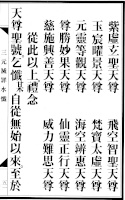 紫虛玄聖天尊　飛空智聖天尊
玉宸曜景天尊　梵寶太虛天尊
元靈等觀天尊　海空辨惠天尊
尊勝妙果天尊　仙靈正行天尊
慈施興善天尊　威力難思天尊
從此以上禮念
天尊聖號乞懺自從無始以來至於
三元滅罪水懺